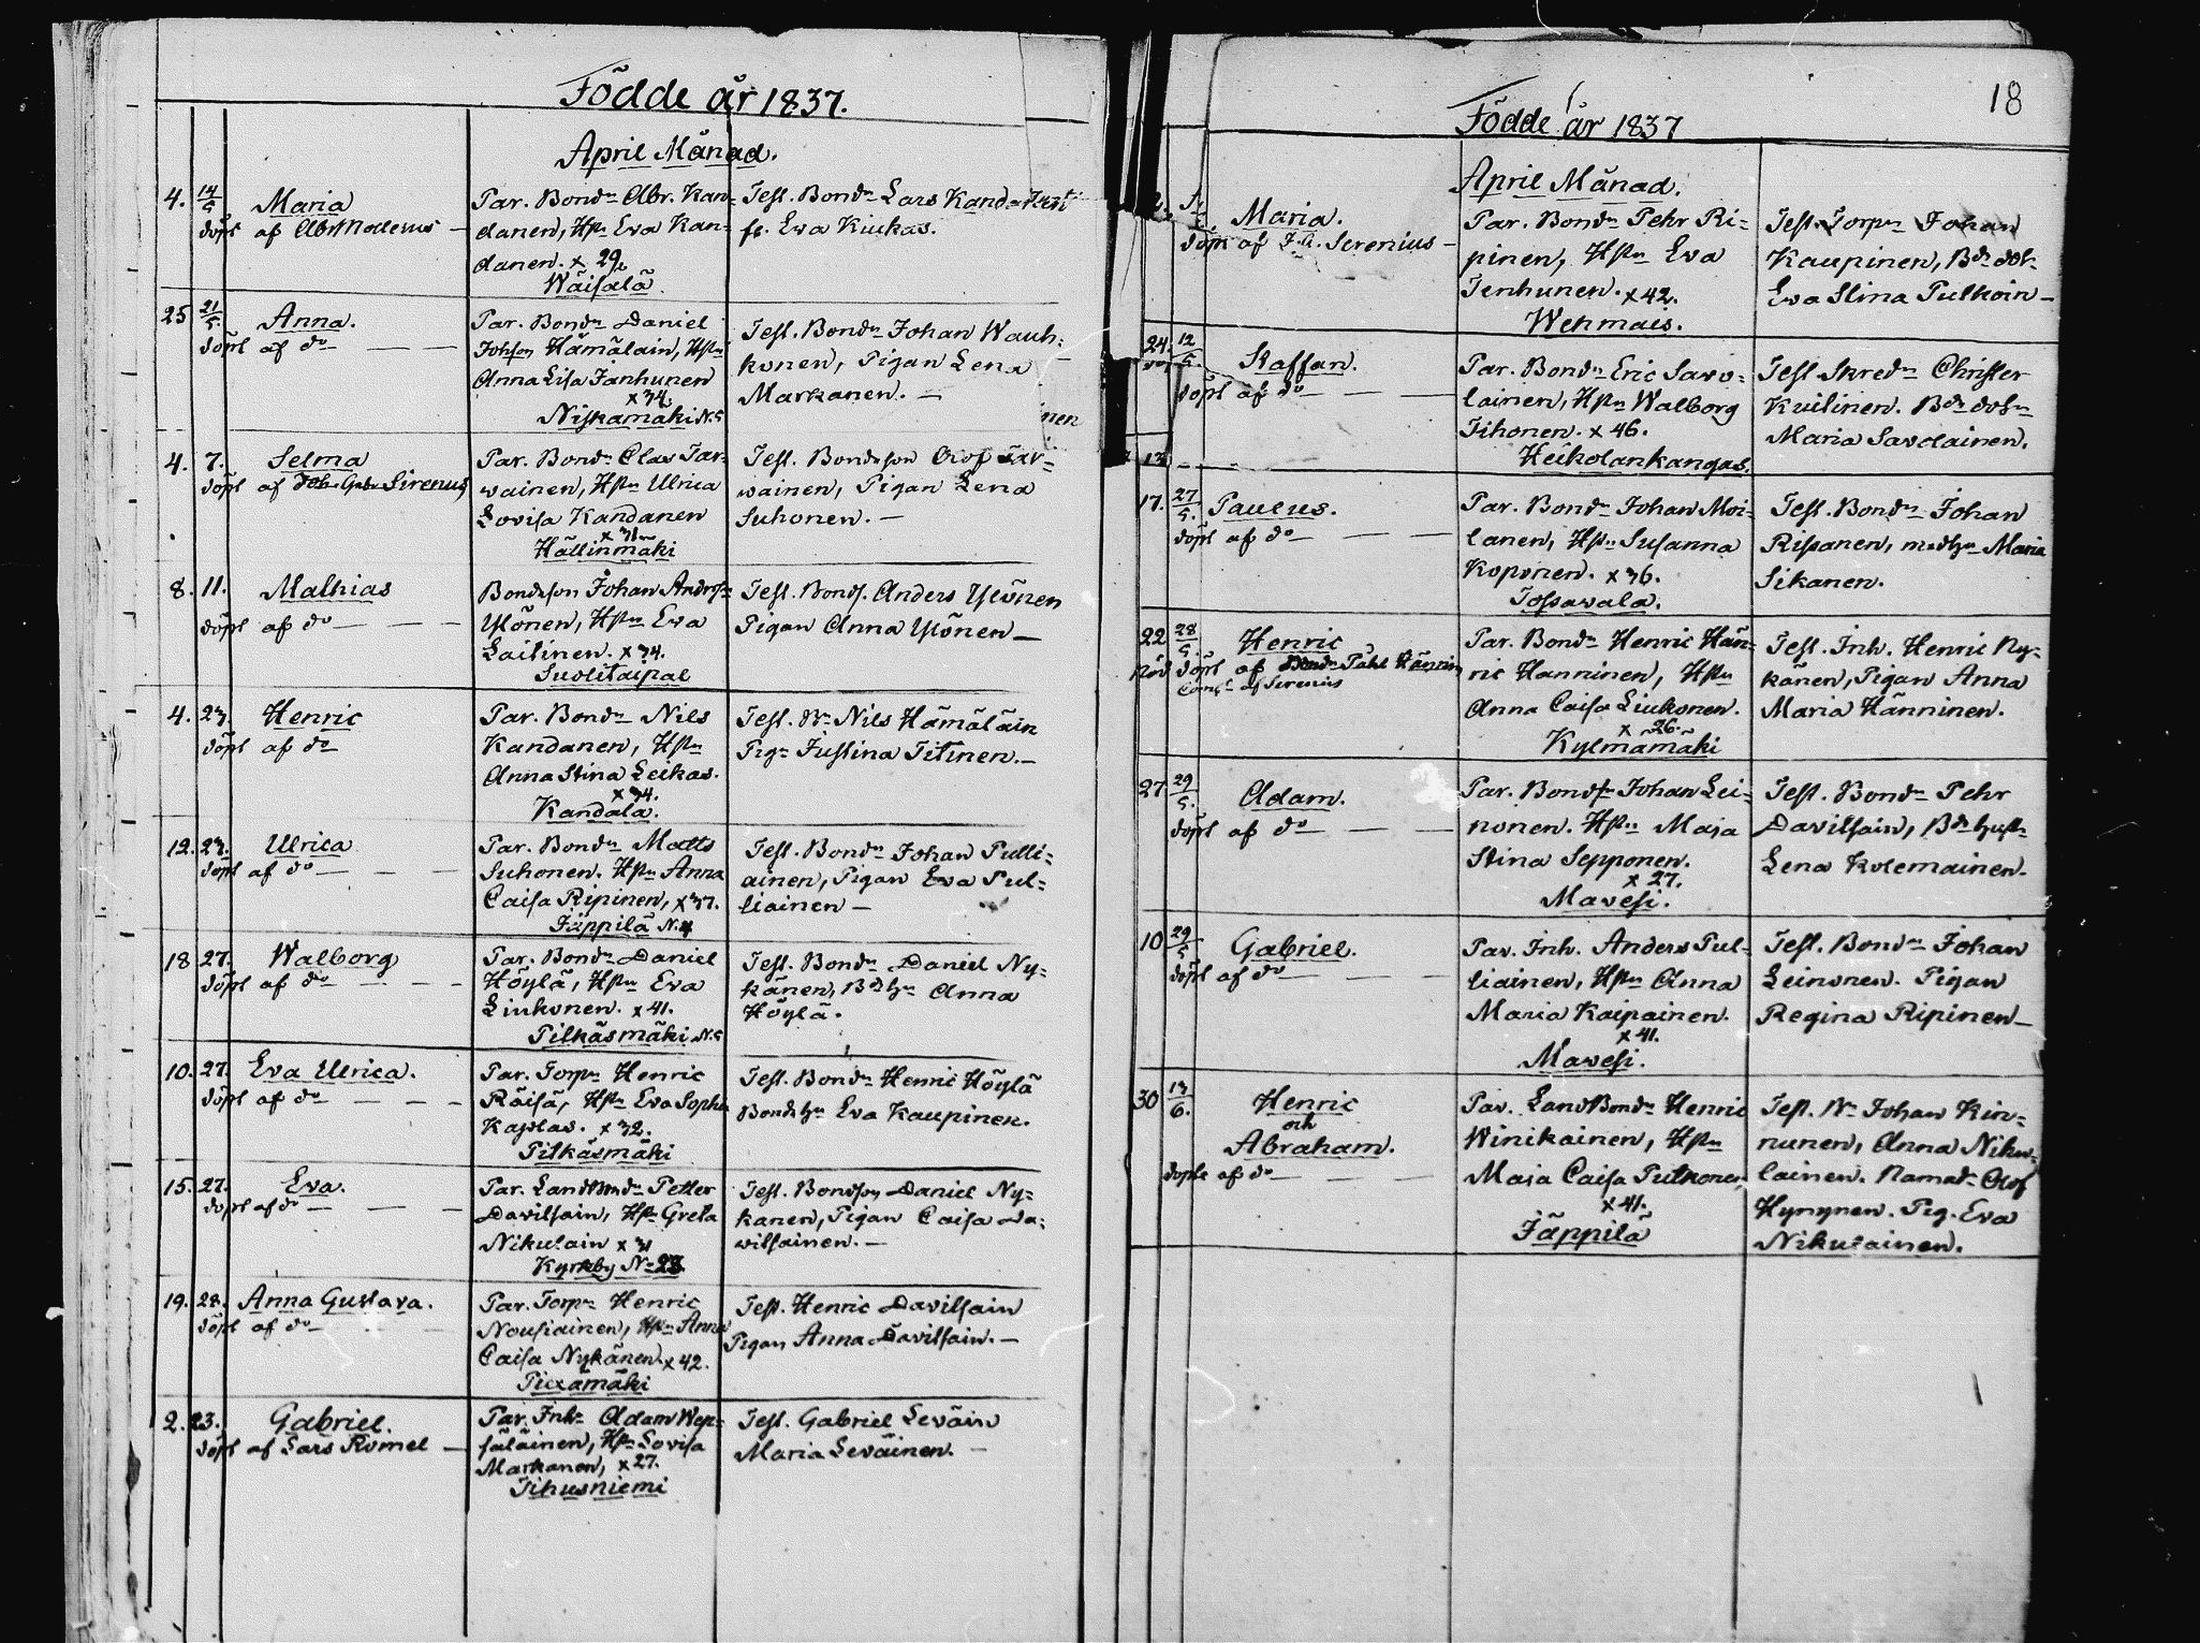 Födde år 1837.
April Månad.
4. 14/5 Maria
döpt af Abr Moderus —
Par. Bondn Abr. Kan=
danen, Hstn Eva Kan=
danen. x 29.
Wäisälä.
Test. Bondn Lars Kandanen
fr. Eva Kiukas.
25 21/5. Anna.
döpt af do — —
Par. Bondn Daniel
Johson Hämäläin, Hstn
Anna Lisa Janhunen
x 34.
Niskamäki N.5
Test. Bondn Johan Wauh=
konen, Pigan Lena
Markanen. —
inen
4. 7. Selma
döpt af Gabr Sirenius
Par. Bondn Clas Tar=
wainen, Hstn Ulrica
Lovisa Kandanen
x 31
Hällinmäki
Test. Bondeson Olof Tar=
wainen, Pigan Lena
Suhonen. —
8. 11. Mathias
döpt af do — — —
Bondeson Johan Andrsn
Ylönen, Hstn Eva
Laitinen. x 34.
Suolitaipal
Test. Bonds. Anders Ylönen
Pigan Anna Ylönen —
4. 23. Henric
döpt af do
Par. Bondn Nils
Kandanen, Hstn
Anna Stina Leikas.
x 34.
Kandala.
Test. Dr Nils Hämäläin
Pign Justina Titinen. —
12. 23. Ulrica
döpt af do — — —
Par. Bondn Matts
Suhonen. Hstn Anna
Caisa Ripinen, x 37.
Jäppilä N.4
Test. Bondn Johan Pulli=
ainen, Pigan Eva Pul=
liainen —
18 27. Walborg
döpt af do — — —
Par. Bondn Daniel
Höylä, Hstn Eva
Liukonen. x 41.
Pilkäsmäki N.5
Test. Bondn Daniel Ny=
känen, Bdehu Anna
Höylä.
10. 27. Eva Ulrica.
döpt af do — — —
Par. Torpn Henric
Räisä, Hstn Eva Sophia
Kajolas. x 32.
Pilkäsmäki
Test. Bondn Henric Höylä
Bondehu Eva Kaupinen.
15. 27. Eva.
döpt af do — — —
Par. LandBondn Petter
Davilsain, Hstn Greta
Nikulain x 31
Kyrkby No 23
Test. Bondson Daniel Ny=
kanen, Pigan Caisa Da=
vilsainen. —
19. 28. Anna Gustava.
döpt af do —
Par. Torpn Henric
Nousiainen, Hstn Anna
Caisa Nykänen x 42.
Piexämäki
Test. Henric Davilsain
Pigan Anna Davilsain. —
2. 23. Gabriel.
döpt af Lars Romel —
Par. Inh. Adam Wep=
säläinen, Hstn Lovisa
Markanen, x 27.
Tihusniemi
Test. Gabriel Leväin
Maria Leväinen. —
18
Födde år 1837
April Månad.
Maria.
döpt af J.A. Serenius —
Par. Bondn Pehr Ri=
pinen, Hstn Eva
Tenhunen. x 42.
Wehmais.
Test. Torpn Johan
Kaupinen, Bde dotr
Eva Stina Pulkoin —
24. 12/5. Staffan.
döpt af do — — —
Par. Bondn Eric Savo=
lainen, Hstn Walborg
Tihonen. x 46.
Heikolankangas.
Test Skredn Christer
Kuitinen. Bde dotn
Maria Savolainen.
13
17. 27/5. Paulus.
döpt af do — — —
Par. Bondn Johan Moi=
lanen, Hstn Susanna
Koponen. x 36.
Tossavala.
Test. Bondn Johan
Rissanen, medhu Maria
Sikanen.
22 28/5. Henric
Nöd döpt af Bondn Påhl Hännin
Comf. af Serenius
Par. Bondn Henric Hän=
ric Hanninen, Hstn
Anna Caisa Liukonen.
x 26.
Kylmämäki
Test. Inh. Henric Ny=
känen, Pigan Anna
Maria Hänninen.
27 29/5. Adam.
döpt af do — — —
Par. Bondsn Johan Lei=
nonen. Hstn Maja
Stina Sepponen.
x 27.
Mavesi.
Test. Bondn Pehr
Davilsain, Bde hust
Lena Kolemainen.
10 29/5 Gabriel.
döpt af do — — —
Par. Inh. Anders Pul=
liainen, Hstn Anna
Maria Kaipainen.
x 41.
Mavesi.
Test. Bondn Johan
Leinonen. Pigan
Regina Ripinen —
30 13/6. Henric
och
Abraham.
döpte af do — — —
Par. LandBondn Henric
Winikainen, Hstn
Maja Caisa Pulkonen
x 41.
Jäppilä
Test. Dr Johan Kin=
nunen, Anna Niku=
lainen. Namnd. Olof
Hynynen. Pig. Eva
Nikulainen.